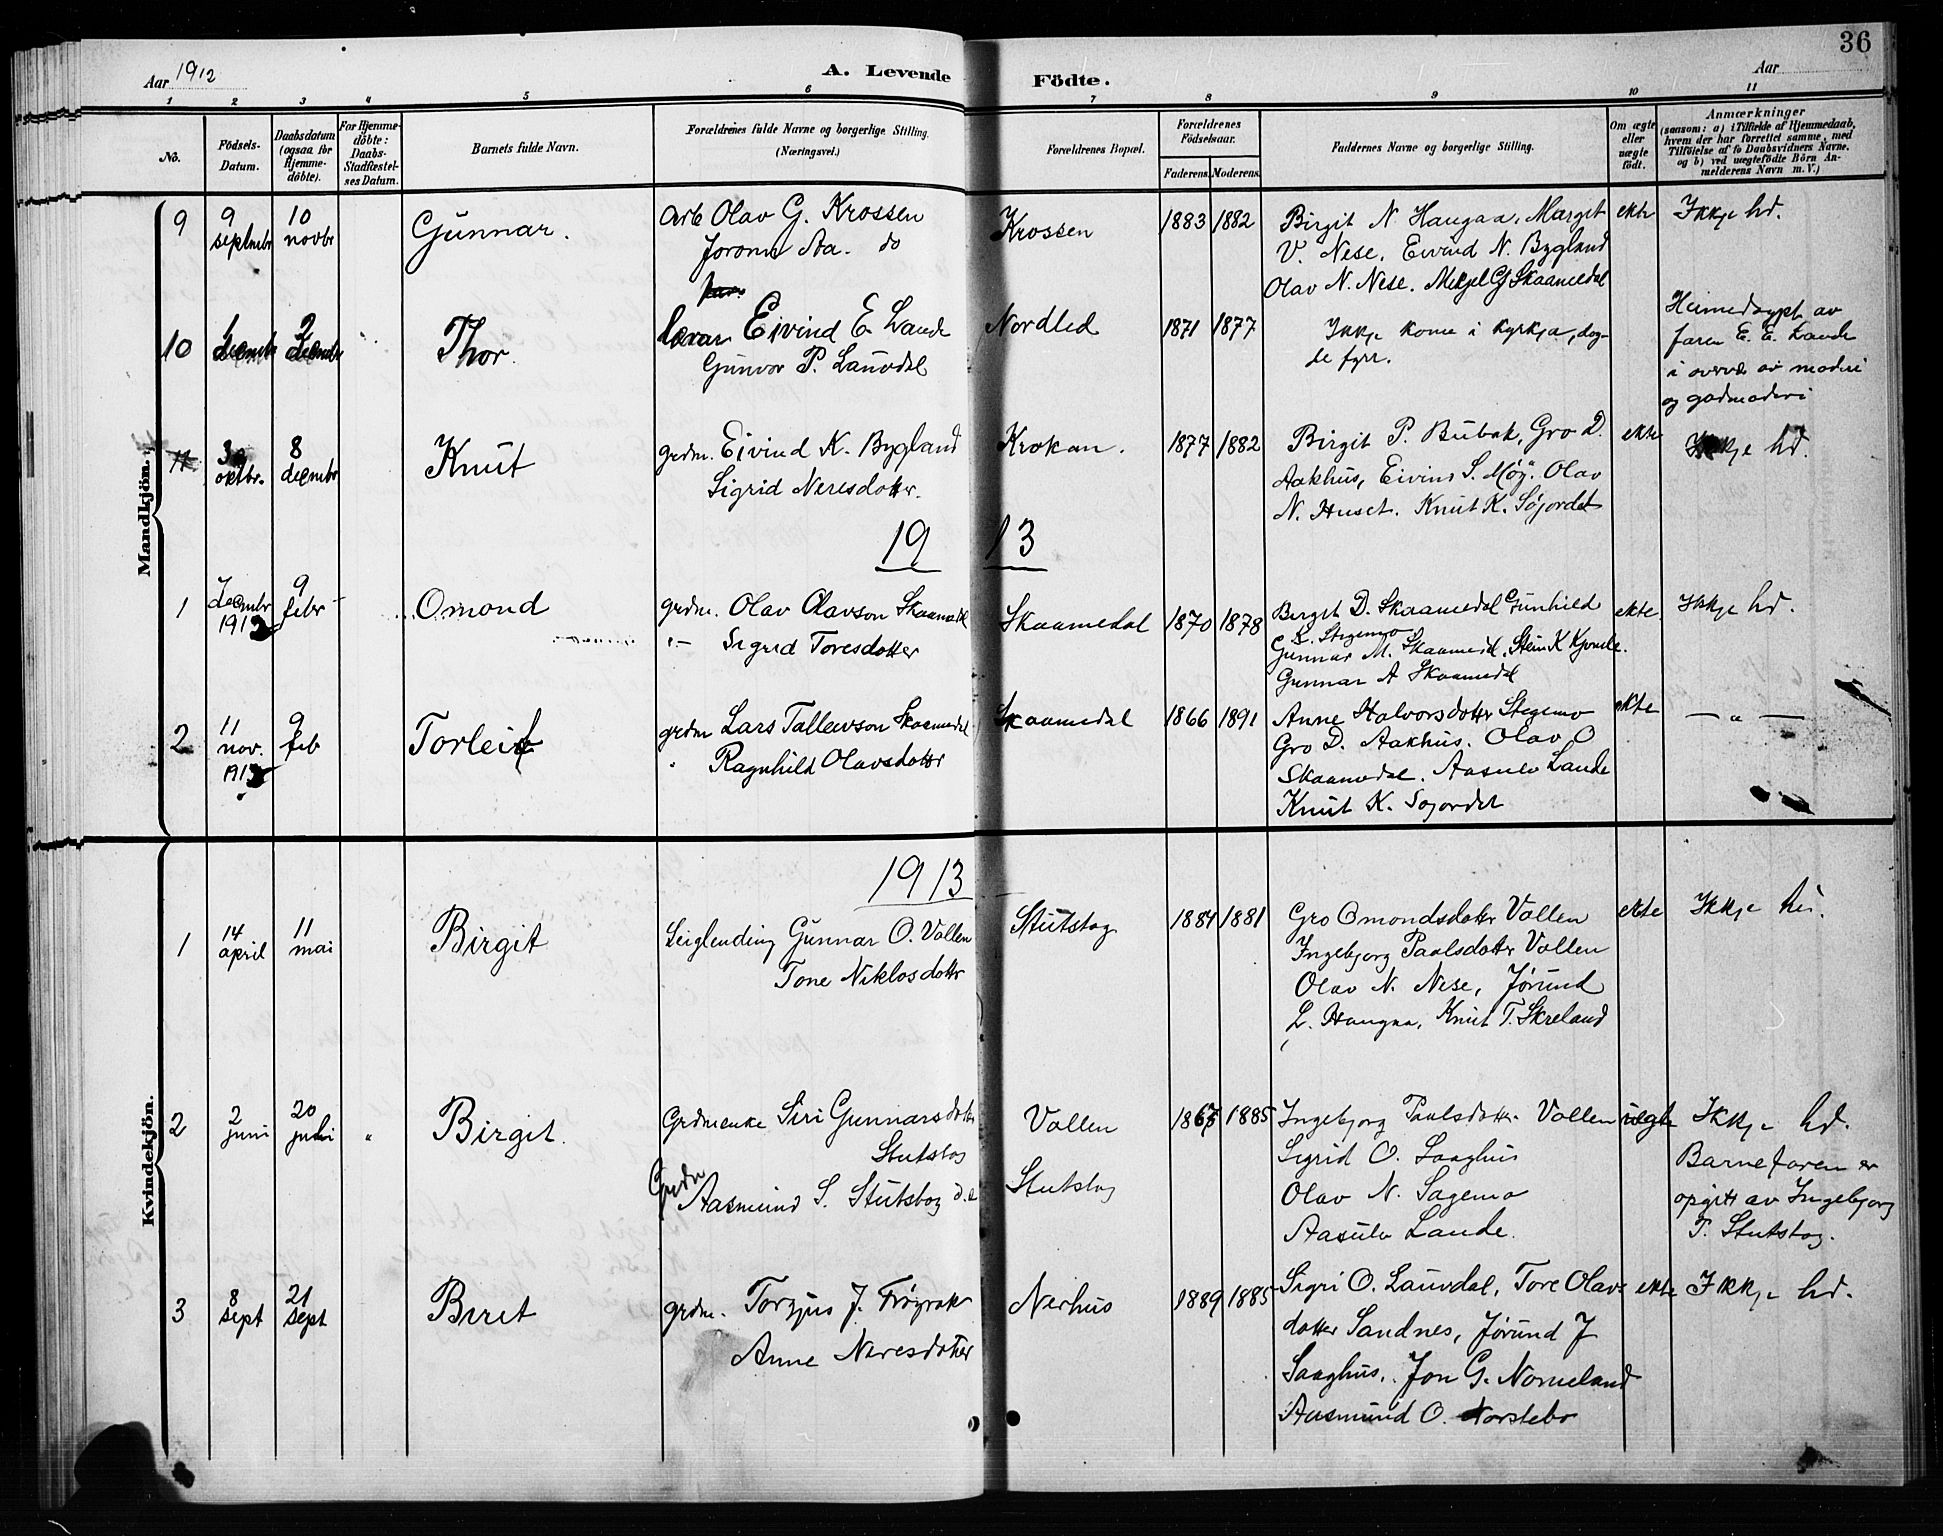 36
Aar 1912
A. Levende
Födte.
Aar
1 2 3 4 5 6 7 8 9 10 11
No.
Födsels-
Datum.
Daabsdatum
(ogsaa for
Hjemme-
döbte).
For Hjemme-
döbte:
Daabs-
Stadfæstel-
ses Datum.
Barnets fulde Navn.
Forældrenes fulde Navne og borgerlige Stilling.
(Næringsvei.)
Forældrenes Bopæl.
Forældrenes
Födselsaar.
Faderens. Moderens.
Faddernes Navne og borgerlige Stilling.
Om ægte
eller
uægte
födt.
Anmærkninger
(saasom: a) i Tilfælde af Hjemmedaab,
hvem der har forrettet samme, med
Tilföielse af to Daabsvidners Navne.
og b) ved uægtefödte Börn An-
melderens Navn m. V.)
Mandkjön.
9
9
septmbr
10
novbr
Gunnar.
Arb Olav G. Krossen
Joronn Aa. do
Krossen
1883 1882
Birgit N Haugaa, Margit
V. Nese, Eivind N. Bygland
Olav N. Nese. Mikjel G Skaamedal
ekte
Ikkje hd.
10
1
decmbr
2
decmbr
Thor.
lærar Eivind E. Lande
Gunvor P. Lauvdal
Nordled
1871 1877
Ikkje kome i kyrkja, døy-
de fyrr.
Heimedøypt av
faren E. E. Lande
i overvær av moderi
og godmoderi
11
30
oktbr.
8
decmbr
Knut
grdm. Eivind K. Bygland
Sigrid Neresdotter.
Krokan.
1877 1882
Birgit P. Bubak, Gro D.
Aakhus, Eivind S. Møy. Olav
N. Huset. Knut K. Søjordet
ekte
Ikkje hd.
19 13
1
7
decmbr
1912
9
febr
Omond
grdm. Olav Olavson Skaamedal
Sigrid Toresdotter
Skaamedal
1870 1878
Birgit D. Skaamedal Gunhild
K. Stegemo
Gunnar M. Skaamedal. Stein K Kjomle.
Gunnar A Skaamedal
ekte.
Ikkje hd.
2
11
nov.
1912
9
feb
Torleif
grdm Lars Tallevson Skaamedal
Ragnhild Olavsdotter
Skaamedal
1866 1891
Anne Halvorsdotter Stegemo
Gro D. Aakhus. Olav O
Skaamedal. Aasulv Lande
Knut K. Søjordet
ekte
— " —
Kvindekjön.
1913
1
14
april
11
mai
Birgit
Leiglending Gunnar O. Vollen
Tone Niklosdotter
Stutstog
1884 1881
Gro Omondsdotter Vollen
Ingebjorg Paalsdotter Vollen
Olav N. Nese, Jørund
L. Haugaa, Knut T. Skreland
ekte
Ikkje hd.
2
2
juni
20
juli
"
Birgit.
Grdmenke Siri Gunnarsdotter
Stutstog
Grdm
Aasmund S. Stutstog
Vollen
Stutstog
1867 1885
Ingebjorg Paalsdotter Vollen
Sigrid O. Laaghus
Olav N. Sagemo
Aasulv Lande.
uegte
Ikkje hd.
Barnefaren er
opgitt av Ingebjorg
P. Stutstog.
3
8
sept
21
sept
Birit
grdm. Torgjus J. Frøyrak
Anne Neresdotter
Nerhus
1889 1885
Sigri O. Lauvdal, Tore Olavs
dotter Sandnes, Jørund J
Laaghus, Jon G. Nomeland
Aasmund O. Norstebø
ekte
Ikkje hd.